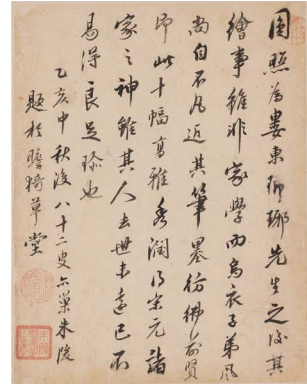 圓照為婁東瑯琊先生之後其
繪事雖非家學而烏衣子弟風
尚自不凡近其筆墨彷彿前賢
即此十幅高雅秀潤得宋元諸
家之神雖其人去世未遠已不
易得良足珍也
乙亥中秋後八十二叟六巢朱陛
題於瞻綺草堂